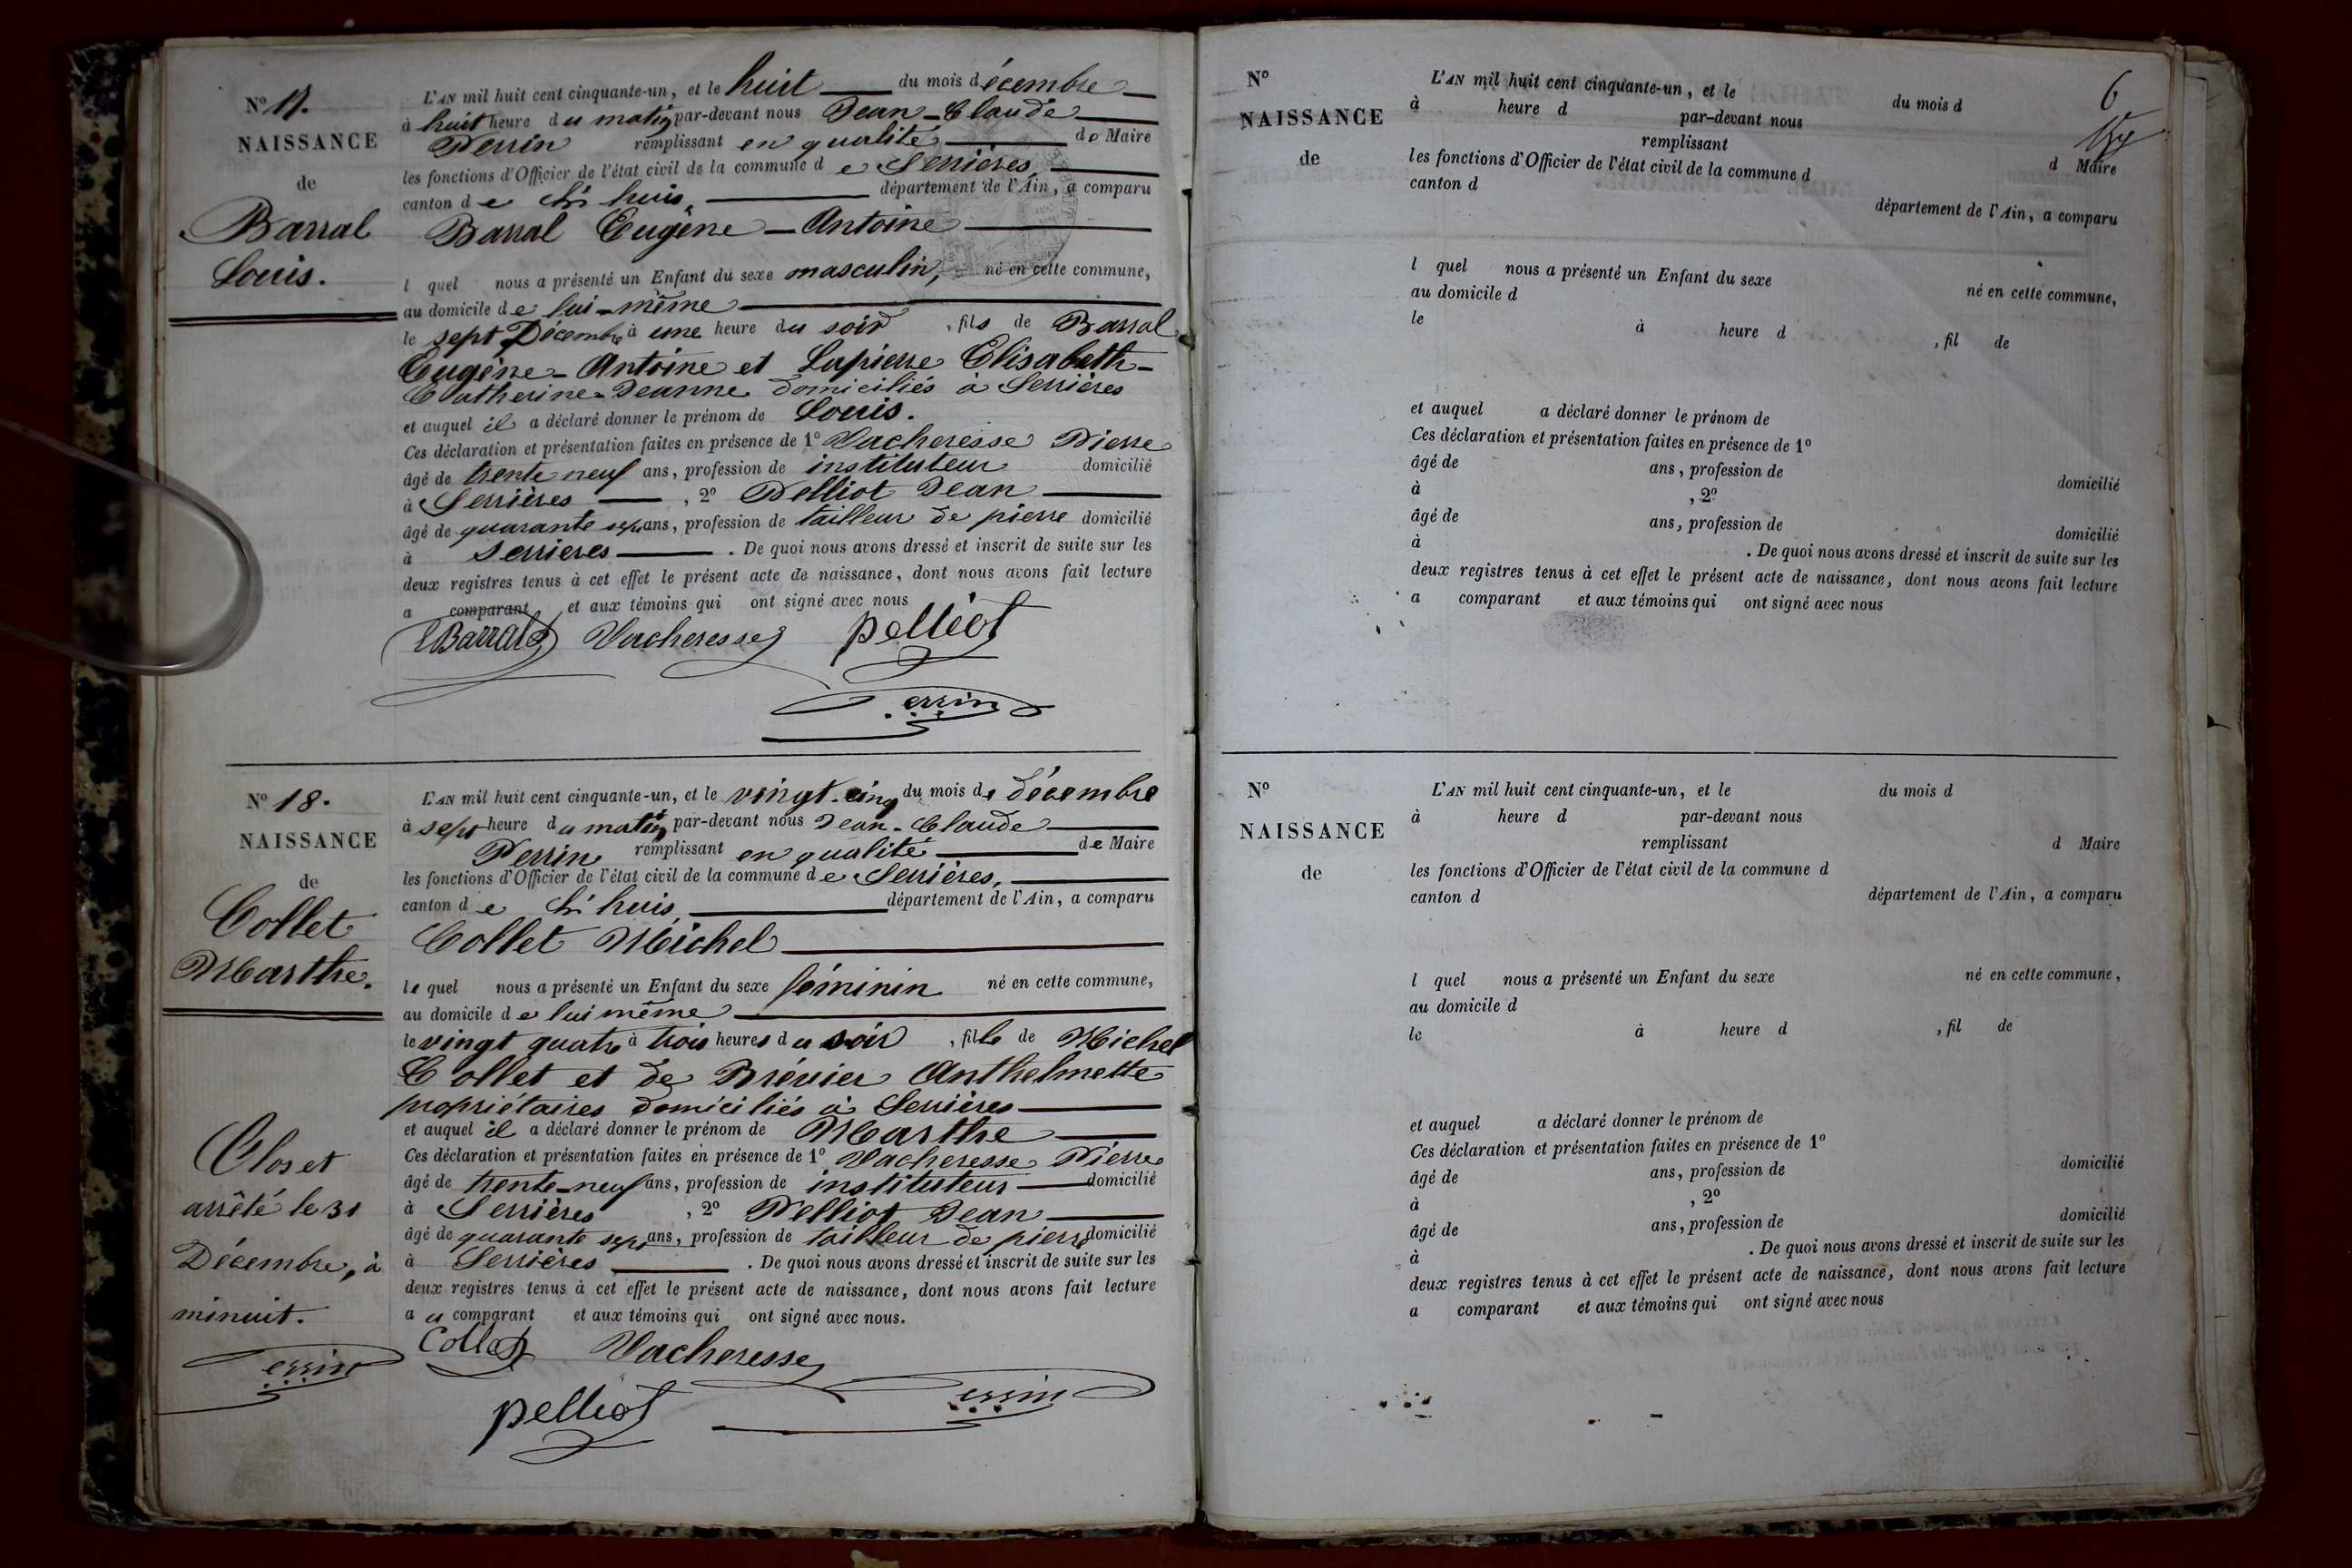 N° 17.
NAISSANCE
de
Barral
Louis.
L'AN mil huit cent cinquante-un, et le huit du mois décembre
à huit heure du matin par-devant nous Jean-Claude
Perrin remplissant en qualité de Maire
les fonctions d'Officier de l'état civil de la commune de Serrières,
canton de Lhuis, département de l'Ain, a comparu
Barral Eugène-Antoine
l quel nous a présenté un Enfant du sexe masculin, né en cette commune,
au domicile de lui-même
le sept Décembre à une heure du soir, fils de Barral
Eugène-Antoine et Lapierre Elisabeth-
Catherine-Jeanne domiciliés à Serrières
et auquel il a déclaré donner le prénom de Louis.
Ces déclaration et présentation faites en présence de 1° Vacheresse Pierre
âgé de trente neuf ans, profession de instituteur domicilié
à Serrières, 2° Pelliot Jean
âgé de quarante sept ans, profession de tailleur de pierre domicilié
à Serrieres. De quoi nous avons dressé et inscrit de suite sur les
deux registres tenus à cet effet le présent acte de naissance, dont nous avons fait lecture
a comparant et aux témoins qui ont signé avec nous
Barral Vacheresse pelliot
Perrin
N° 18.
NAISSANCE
de
Collet
Marthe.
Clos et
arrêté le 31
Décembre, à
minuit.
Perrin
L'AN mil huit cent cinquante-un, et le vingt-cinq du mois de décembre
à sept heure du matin par-devant nous Jean-Claude
Perrin remplissant en qualité de Maire
les fonctions d'Officier de l'état civil de la commune de Serrières,
canton de Lhuis, département de l'Ain, a comparu
Collet Michel
lequel nous a présenté un Enfant du sexe féminin né en cette commune,
au domicile de lui même
le vingt quatre à trois heures du soir, fille de Michel
Collet et de Brévier Anthelmette
propriétaires domiciliés à Serrières
et auquel il a déclaré donner le prénom de Marthe
Ces déclaration et présentation faites en présence de 1° Vacheresse Pierre
âgé de trente-neuf ans, profession de instituteur domicilié
à Serrières, 2° Pelliot Jean
âgé de quarante sept ans, profession de tailleur de pierre domicilié
à Serrières. De quoi nous avons dressé et inscrit de suite sur les
deux registres tenus à cet effet le présent acte de naissance, dont nous avons fait lecture
au comparant et aux témoins qui ont signé avec nous.
Collet Vacheresse
pelliot Perrin
6
N°
NAISSANCE
de
L'AN mil huit cent cinquante-un, et le du mois d
à heure d par-devant nous
remplissant d Maire
les fonctions d'Officier de l'état civil de la commune d
canton d département de l'Ain, a comparu
l quel nous a présenté un Enfant du sexe né en cette commune,
au domicile d
le à heure d , fil de
et auquel a déclaré donner le prénom de
Ces déclaration et présentation faites en présence de 1°
âgé de ans, profession de domicilié
à , 2°
âgé de ans, profession de domicilié
à . De quoi nous avons dressé et inscrit de suite sur les
deux registres tenus à cet effet le présent acte de naissance, dont nous avons fait lecture
a comparant et aux témoins qui ont signé avec nous
N°
NAISSANCE
de
L'AN mil huit cent cinquante-un, et le du mois d
à heure d par-devant nous
remplissant d Maire
les fonctions d'Officier de l'état civil de la commune d
canton d département de l'Ain, a comparu
l quel nous a présenté un Enfant du sexe né en cette commune,
au domicile d
le à heure d , fil de
et auquel a déclaré donner le prénom de
Ces déclaration et présentation faites en présence de 1°
âgé de ans, profession de domicilié
à , 2°
âgé de ans, profession de domicilié
à . De quoi nous avons dressé et inscrit de suite sur les
deux registres tenus à cet effet le présent acte de naissance, dont nous avons fait lecture
a comparant et aux témoins qui ont signé avec nous